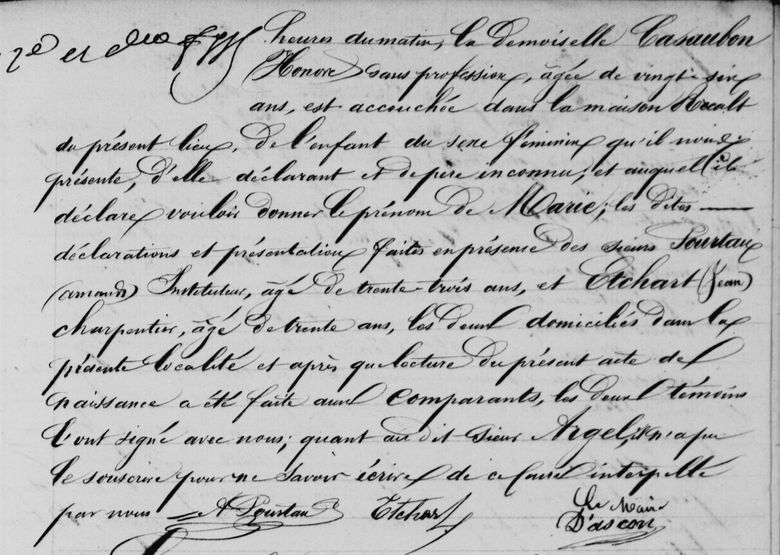 heures du matin, la demoiselle Casaubon
(Honoré) sans profession, âgée de vingt-six
ans, est accouchée dans la maison Recalt
du présent lieu, de l'enfant du sexe féminin qu'il nous
présente, d'elle déclarant et de père inconnu; et auquel il
déclare vouloir donner le prénom de Marie; les dites
déclarations et présentation faites en présence des sieurs Pourtau
(amand) Instituteur, âgé de trente-trois ans, et Etchart (Jean)
charpentier, âgé de trente ans, les deux domiciliés dans la
présente localité et après que lecture du présent acte de
naissance a été faite aux comparants, les deux témoins
l'ont signé avec nous; quant au dit sieur Argel, il n'a pu
le souscrire pour ne savoir écrire de ce faire interpellé
par nous A Pourtau Etchart Le Maire
D'ascon